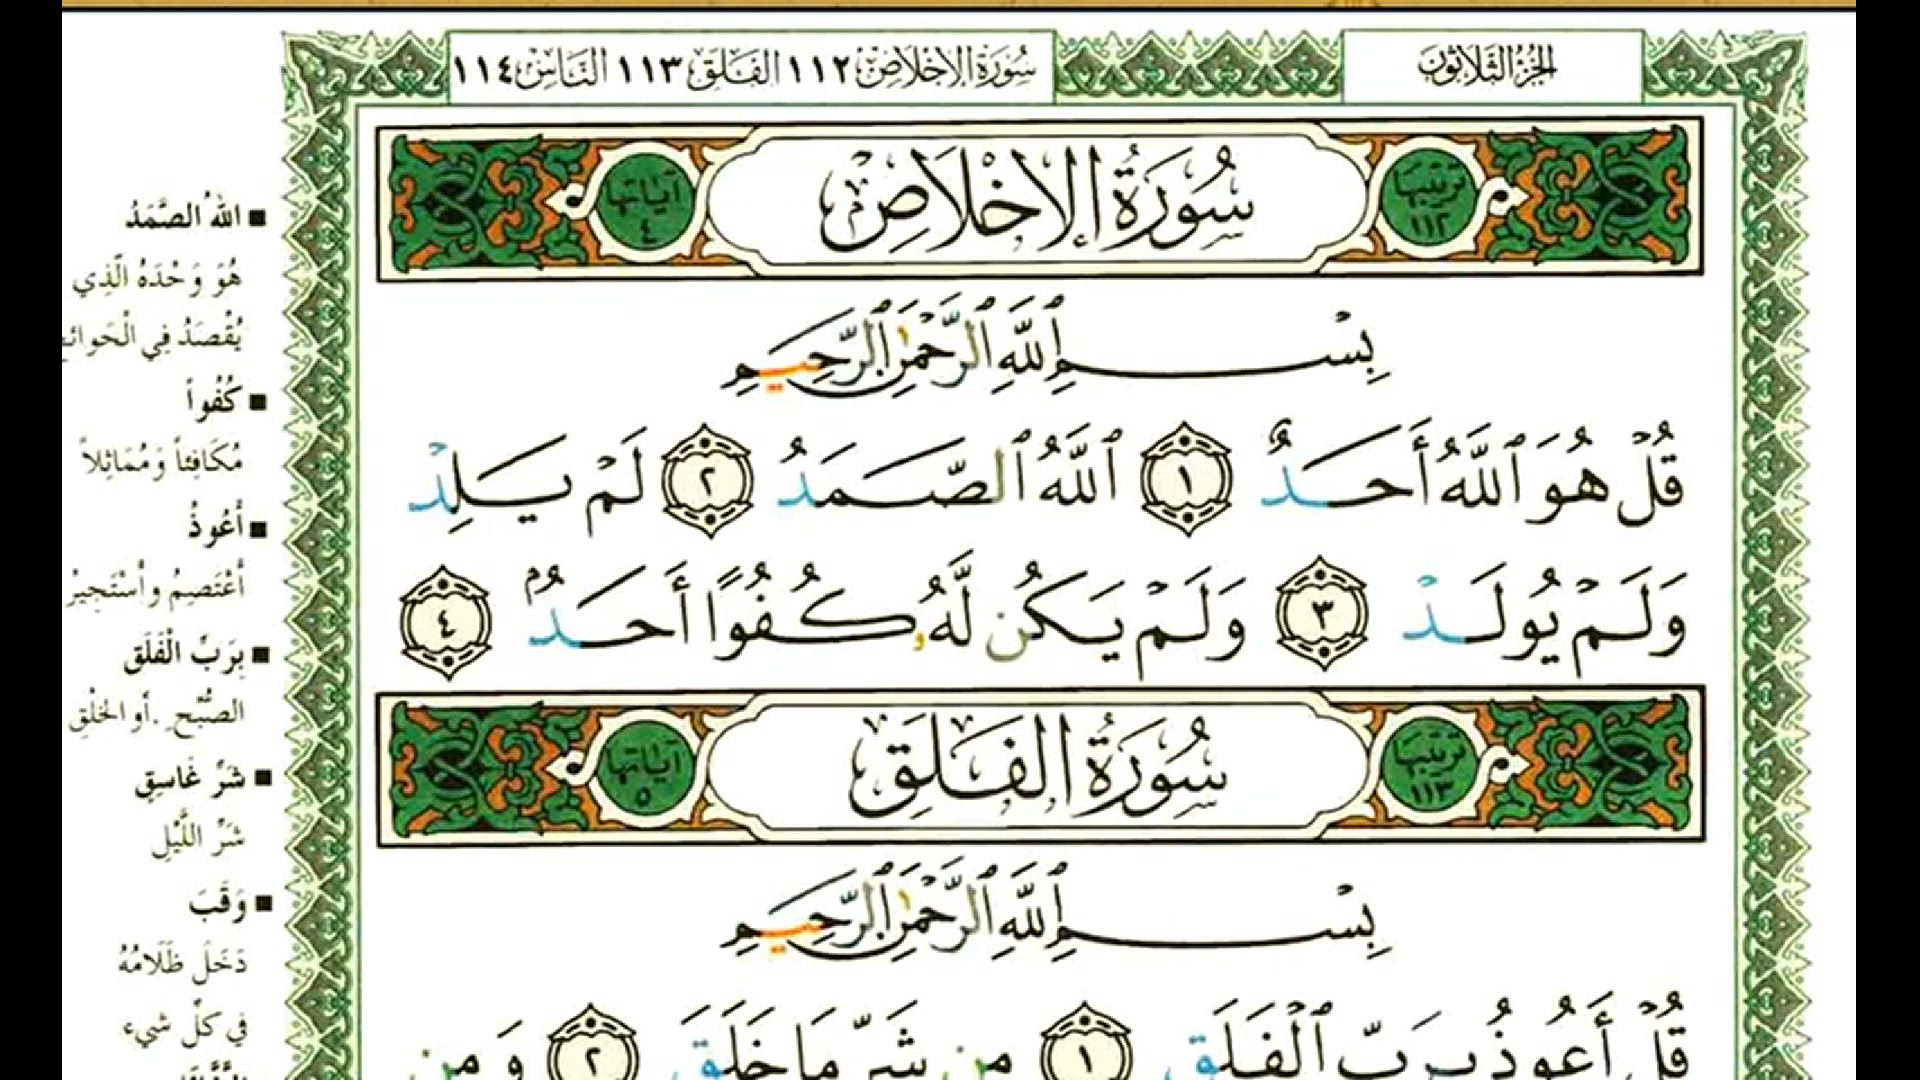 الجزء الثلاثون
سورة الإخلاص ١١٢ الفلق ١١٣ الناس ١١٤
ترتيبها ١١٢
سُورَةُ الإِخْلَاصِ
آياتها ٤
بِسْمِ ٱللَّهِ ٱلرَّحْمَٰنِ ٱلرَّحِيمِ
قُلْ هُوَ ٱللَّهُ أَحَدٌ ١ ٱللَّهُ ٱلصَّمَدُ ٢ لَمْ يَلِدْ
وَلَمْ يُولَدْ ٣ وَلَمْ يَكُن لَّهُۥ كُفُوًا أَحَدٌۢ ٤
ترتيبها ١١٣
سُورَةُ الفَلَقِ
آياتها ٥
بِسْمِ ٱللَّهِ ٱلرَّحْمَٰنِ ٱلرَّحِيمِ
قُلْ أَعُوذُ بِرَبِّ ٱلْفَلَقِ ١ مِن شَرِّ مَا خَلَقَ ٢ وَمِن
اللهُ الصَّمَدُ
هُوَ وَحْدَهُ الَّذِي
يُقْصَدُ فِي
كُفُواً
مُكَافِئاً وَمُمَاثِلاً
أَعُوذُ
أَعْتَصِمُ وأَسْتَجِيرُ
بِرَبِّ الْفَلَقِ
الصُّبْحِ . أو الخَلْقِ
شَرِّ غَاسِقٍ
شَرِّ اللَّيْلِ
وَقَبَ
دَخَلَ ظَلَامُهُ
في كلِّ شيء